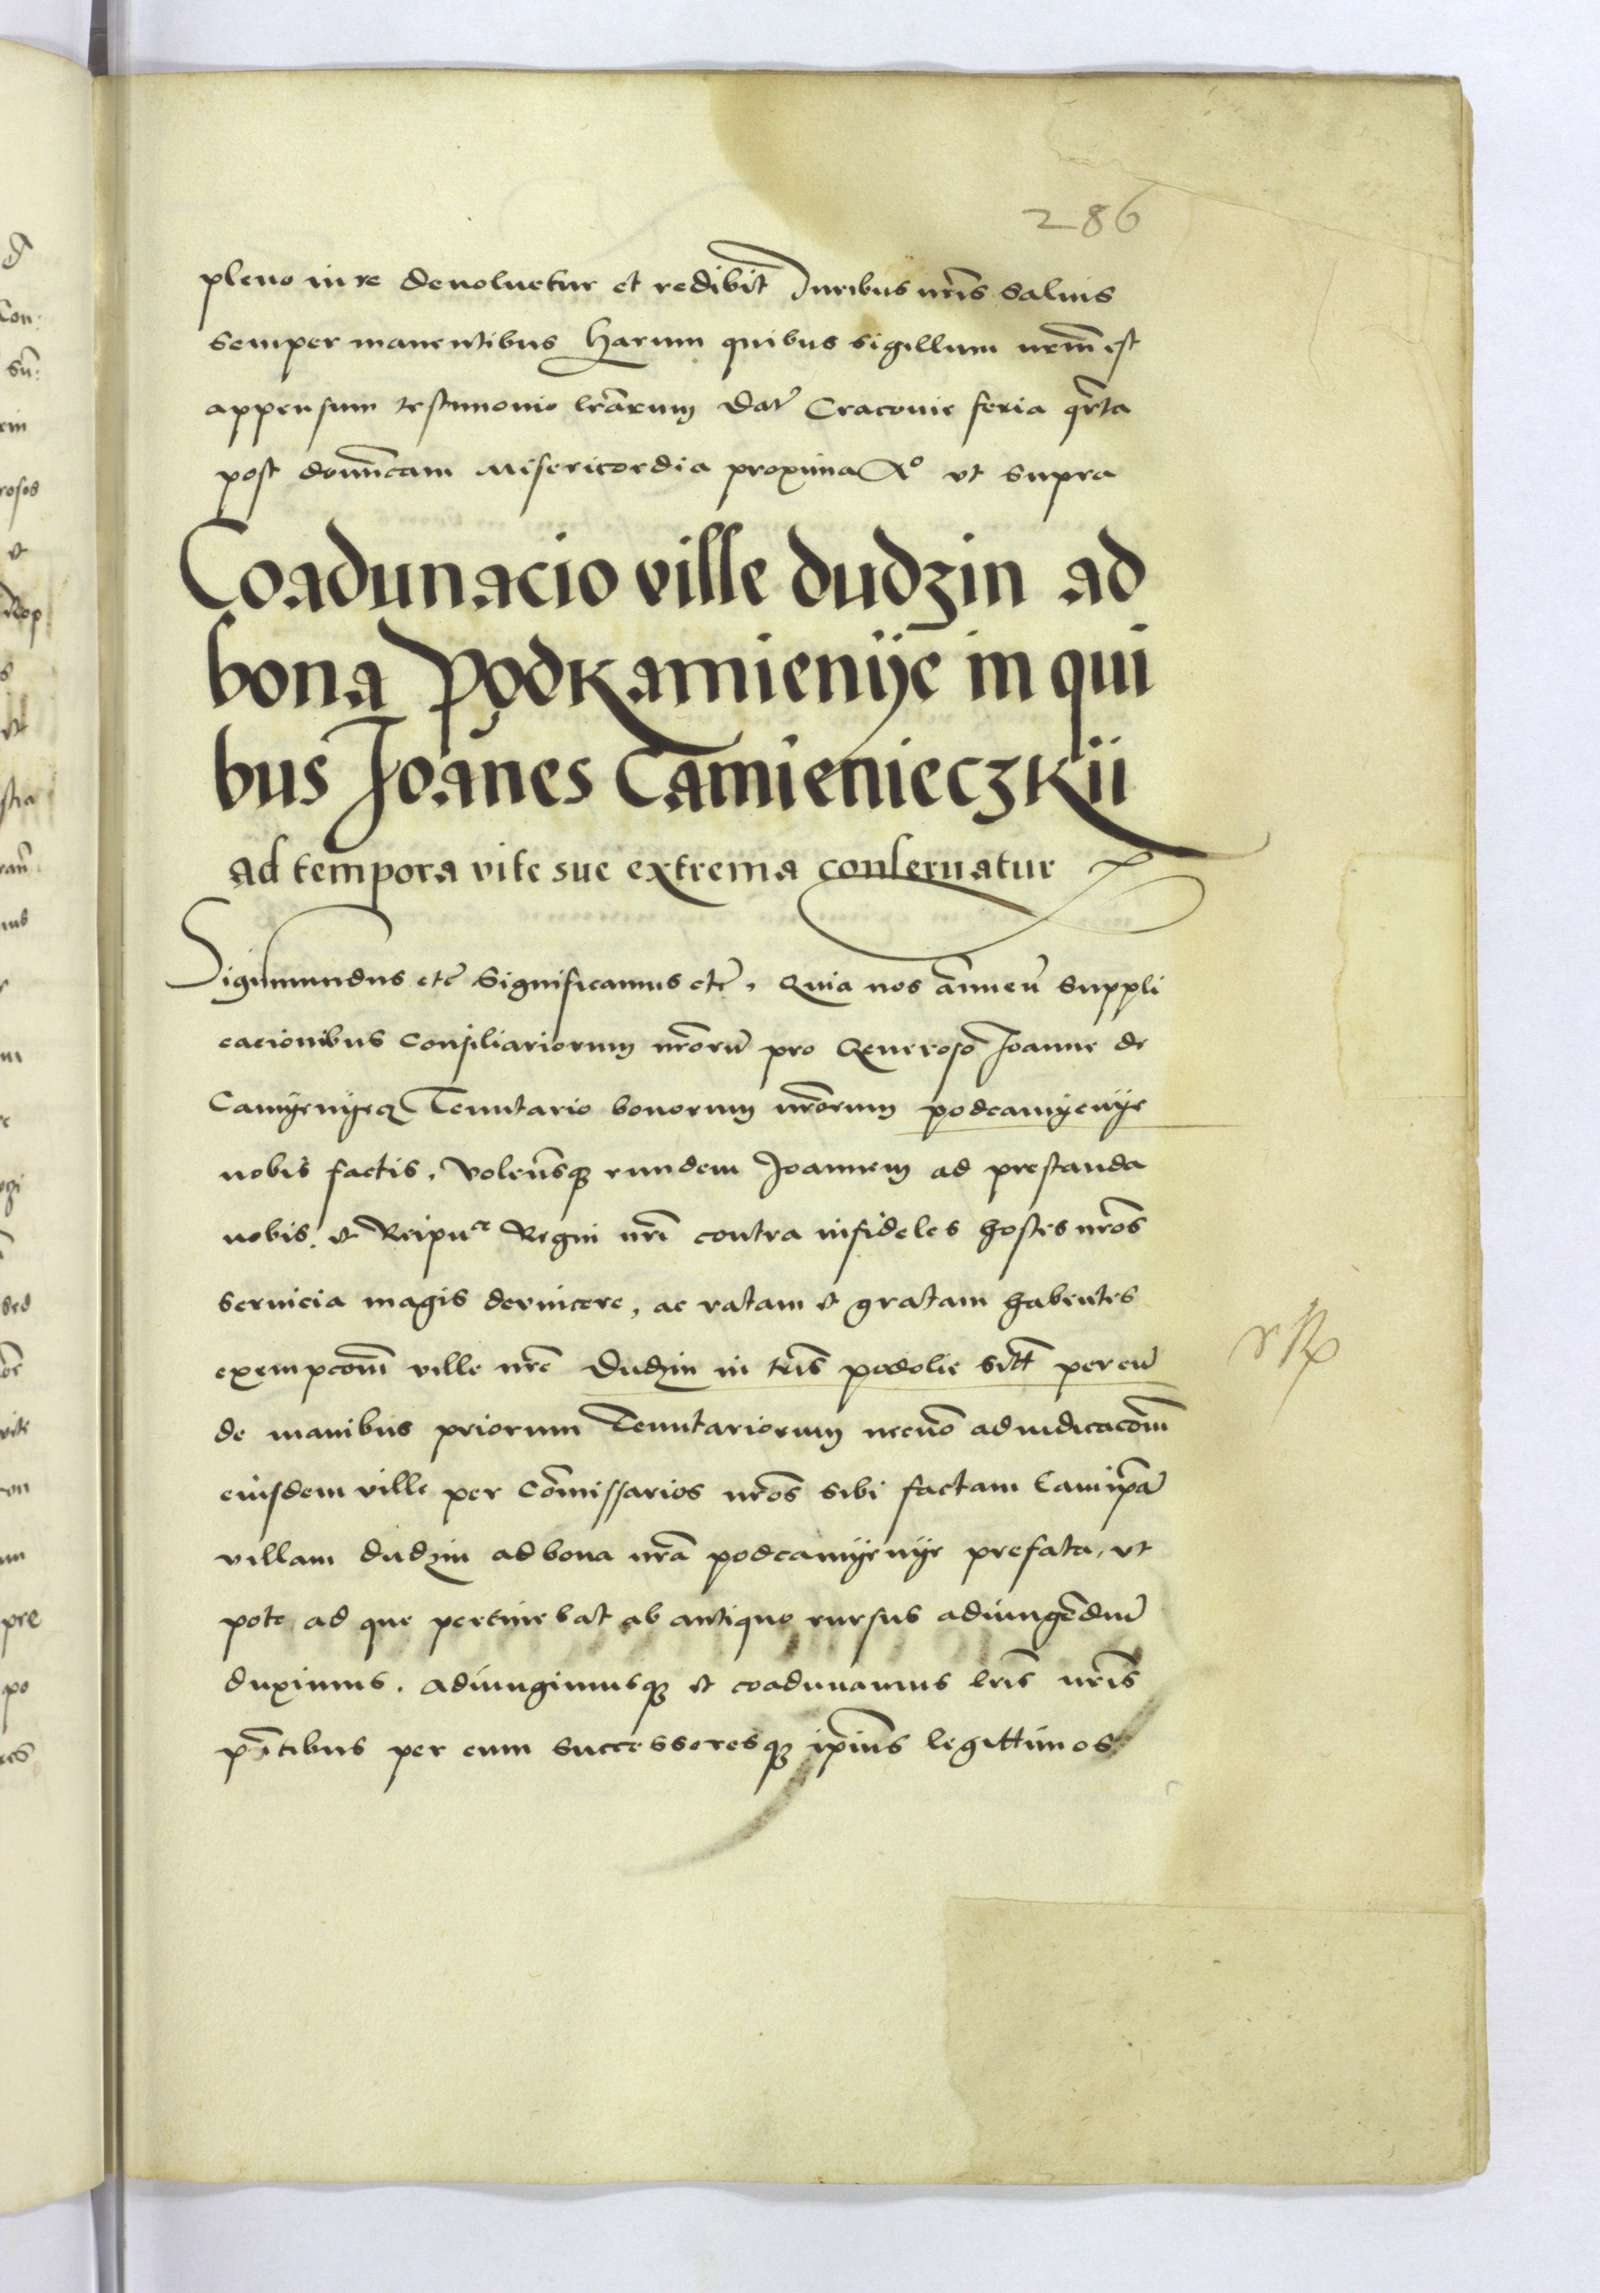 286
pleno iure deuoluetur et redibit Iuribus nris saluis
semper manentibus Harum quibus sigillum nrm est
appensum testimonio lrarum Dat Cracouie feria qrta
post dominicam Misericordia proxima Ao vt supra
Coadunacio ville dudzin ad
bona Podkamienije in qui
bus Joanes Camienieczkii
ad tempora vite sue extrema conseruatur
Sigismundus etc Significamus etc, Quia nos annuen suppli
cacionibus Consiliariorum nrorum pro Generoso Ioanne de
Camyenyecz Tenutario bonorum nrorum podcamyenye
nobis factis, volensq eundem Joannem ad prestanda
nobis et Reipuce Regni nri contra infideles hostes nros
seruicia magis deuincere, ac ratam et gratam habentes
exempcom ville nre Dudzin in tris podolie sitt per eu
de manibus priorum Tenutariorum necno adiudicacom
eiusdem ville per Comissarios nros sibi factam Eam ipa
villam dudzin ad bona nra podcamyenye prefata, vt
pote ad que pertinebat ab antiquo rursus adiungendu
duximus. adiungimusq et coadunamus lris nris
pntibus per eum successoresq ipius legittimos